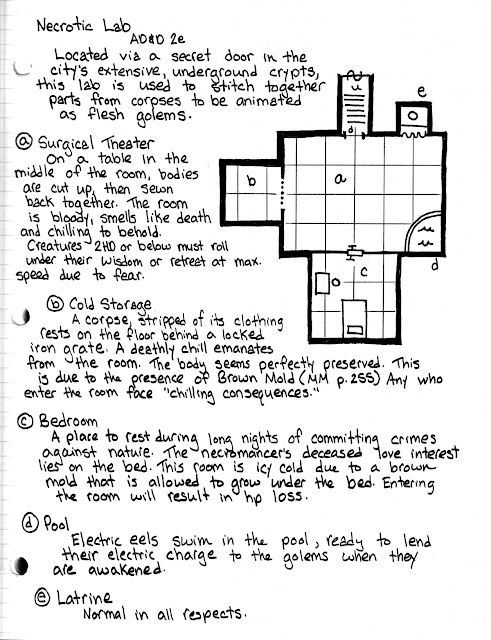 Necrotic Lab
AD&D 2e
Located via a secret door in the
city's extensive, underground crypts,
this lab is used to stitch together
parts from corpses to be animated
as flesh golems.
ⓐ Surgical Theater
On a table in the
middle of the room, bodies
are cut up, then sewn
back together. The room
is bloody, smells like death
and chilling to behold.
Creatures 2HD or below must roll
under their wisdom or retreat at max.
speed due to fear.
ⓑ Cold Storage
A corpse, stripped of its clothing
rests on the floor behind a locked
iron grate. A deathly chill emanates
from the room. The body seems perfectly preserved. This
is due to the presence of Brown Mold (MM p.255) Any who
enter the room face "chilling consequences."
ⓒ Bedroom
A place to rest during long nights of committing crimes
against nature. The necromancer's deceased love interest
lies on the bed. This room is icy cold due to a brown
mold that is allowed to grow under the bed. Entering
the room will result in hp loss.
ⓓ Pool
Electric eels swim in the pool, ready to lend
their electric charge to the golems when they
are awakened.
ⓔ Latrine
Normal in all respects.
u
e
d
b
a
c
d